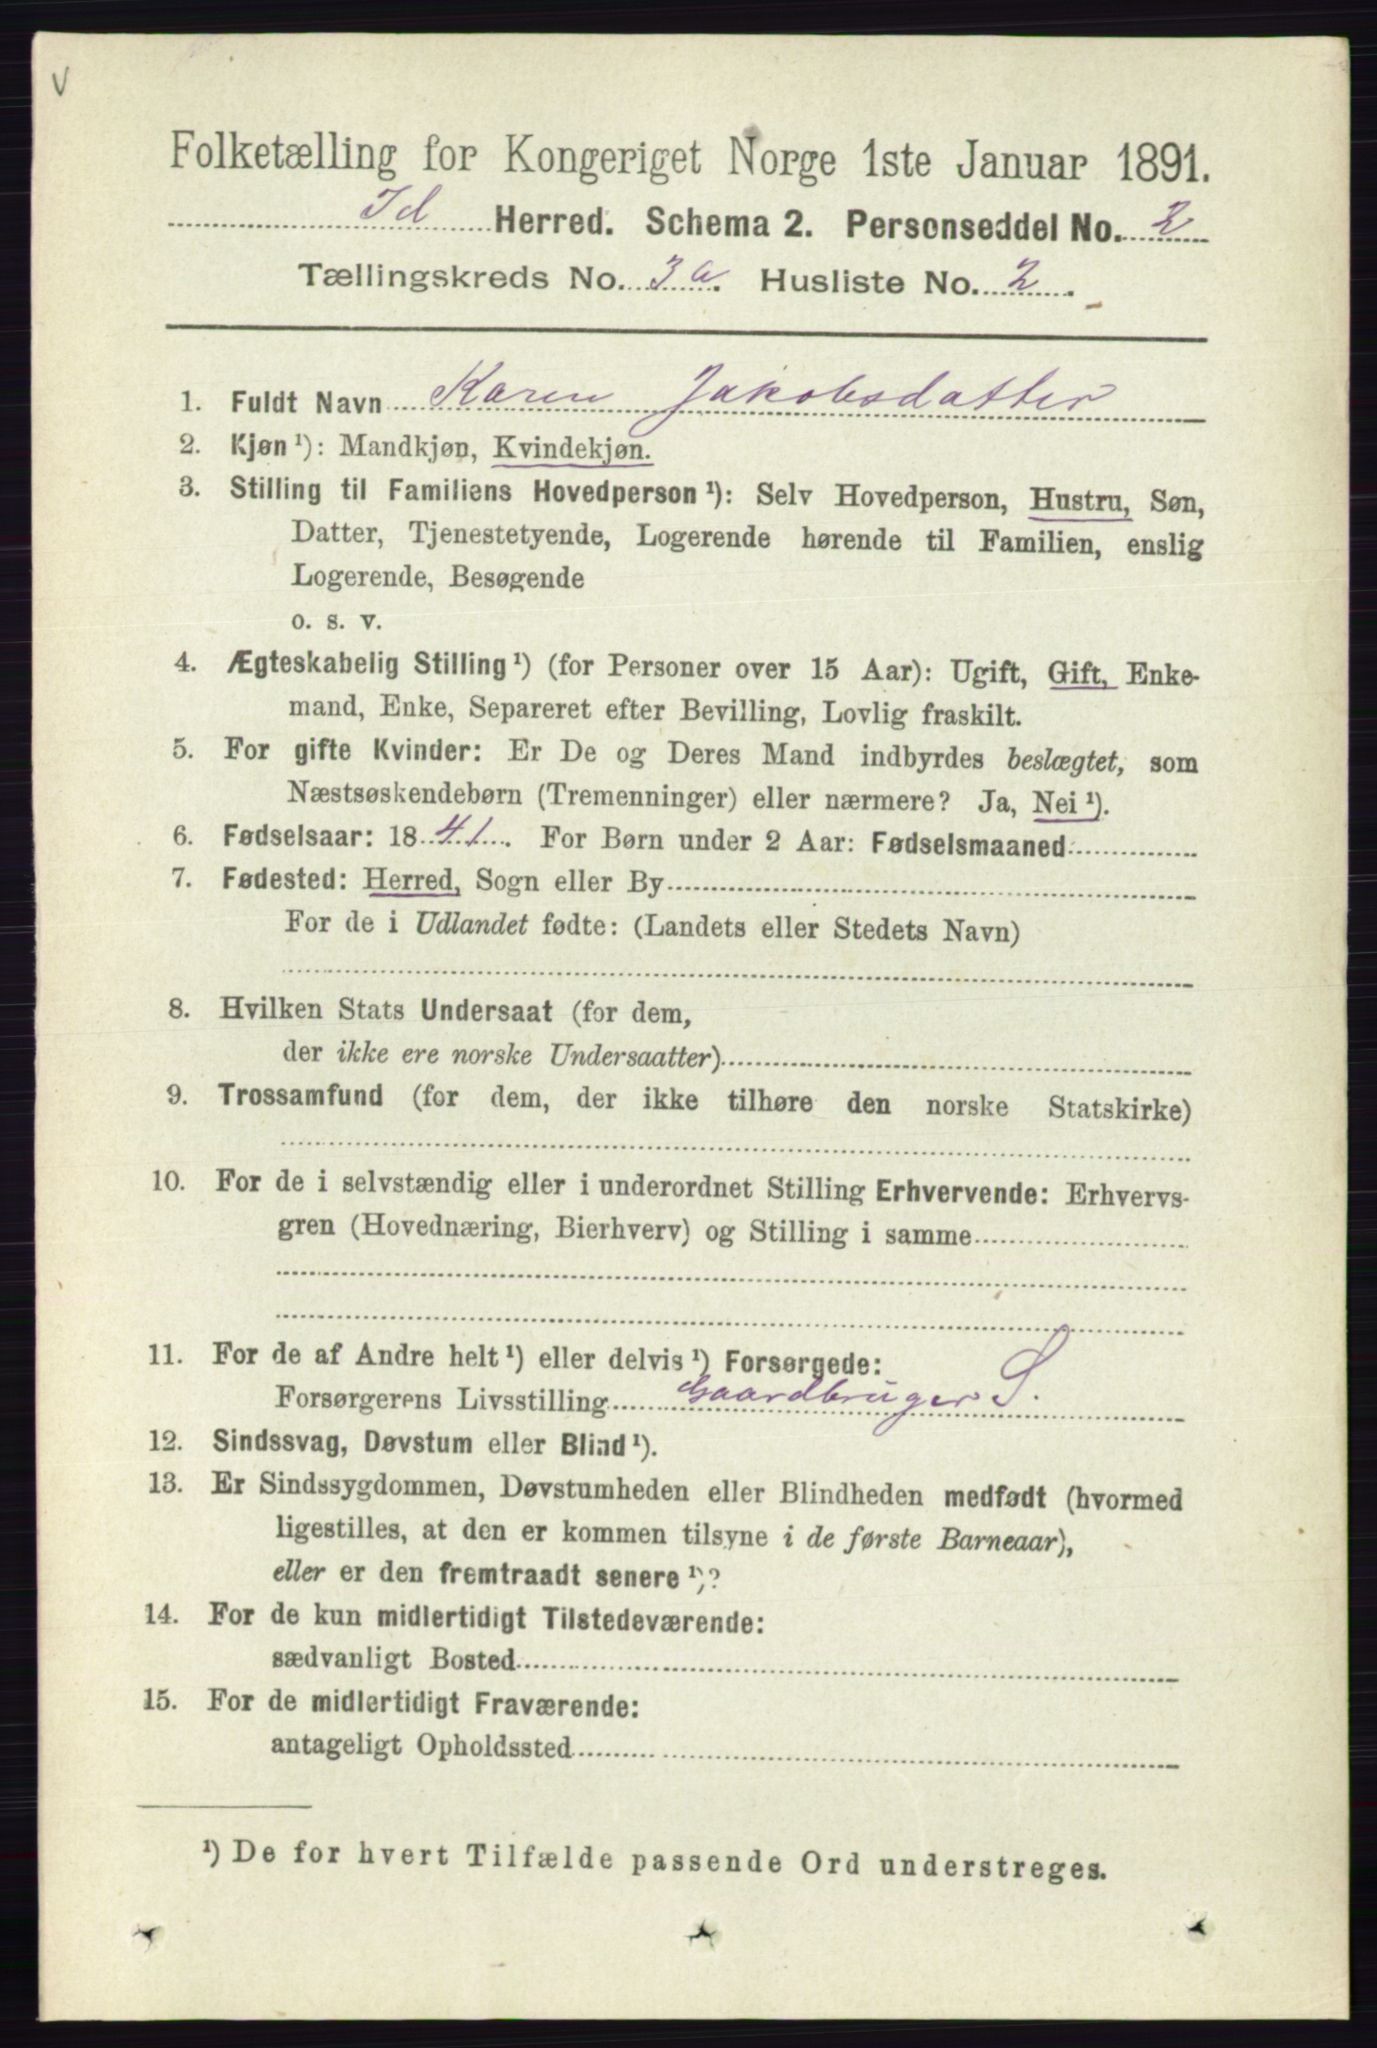 V
Folketælling for Kongeriget Norge 1ste Januar 1891.
Id Herred. Schema 2. Personseddel No. 2
Tællingskreds No. 3 a. Husliste No. 2.
1. Fuldt Navn Karen Jakobsdatter
2. Kjøn ¹): Mandkjøn, Kvindekjøn.
3. Stilling til Familiens Hovedperson ¹): Selv Hovedperson, Hustru, Søn,
Datter, Tjenestetyende, Logerende hørende til Familien, enslig
Logerende, Besøgende
o. s. v.
4. Ægteskabelig Stilling ¹) (for Personer over 15 Aar): Ugift, Gift, Enke-
mand, Enke, Separeret efter Bevilling, Lovlig fraskilt.
5. For gifte Kvinder: Er De og Deres Mand indbyrdes beslægtet, som
Næstsøskendebørn (Tremenninger) eller nærmere? Ja, Nei ¹).
6. Fødselsaar: 1841. For Børn under 2 Aar: Fødselsmaaned
7. Fødested: Herred, Sogn eller By
For de i Udlandet fødte: (Landets eller Stedets Navn)
8. Hvilken Stats Undersaat (for dem,
der ikke ere norske Undersaatter)
9. Trossamfund (for dem, der ikke tilhøre den norske Statskirke)
10. For de i selvstændig eller i underordnet Stilling Erhvervende: Erhvervs-
gren (Hovednæring, Bierhverv) og Stilling i samme
11. For de af Andre helt ¹) eller delvis ¹) Forsørgede:
Forsørgerens Livsstilling Gaardbruger S.
12. Sindssvag, Døvstum eller Blind ¹).
13. Er Sindssygdommen, Døvstumheden eller Blindheden medfødt (hvormed
ligestilles, at den er kommen tilsyne i de første Barneaar),
eller er den fremtraadt senere ¹)?
14. For de kun midlertidigt Tilstedeværende:
sædvanligt Bosted
15. For de midlertidigt Fraværende:
antageligt Opholdssted
¹) De for hvert Tilfælde passende Ord understreges.